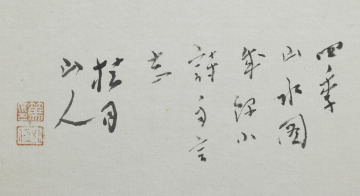 四季
山水図
併録小
詩自言
志
桂月
山人